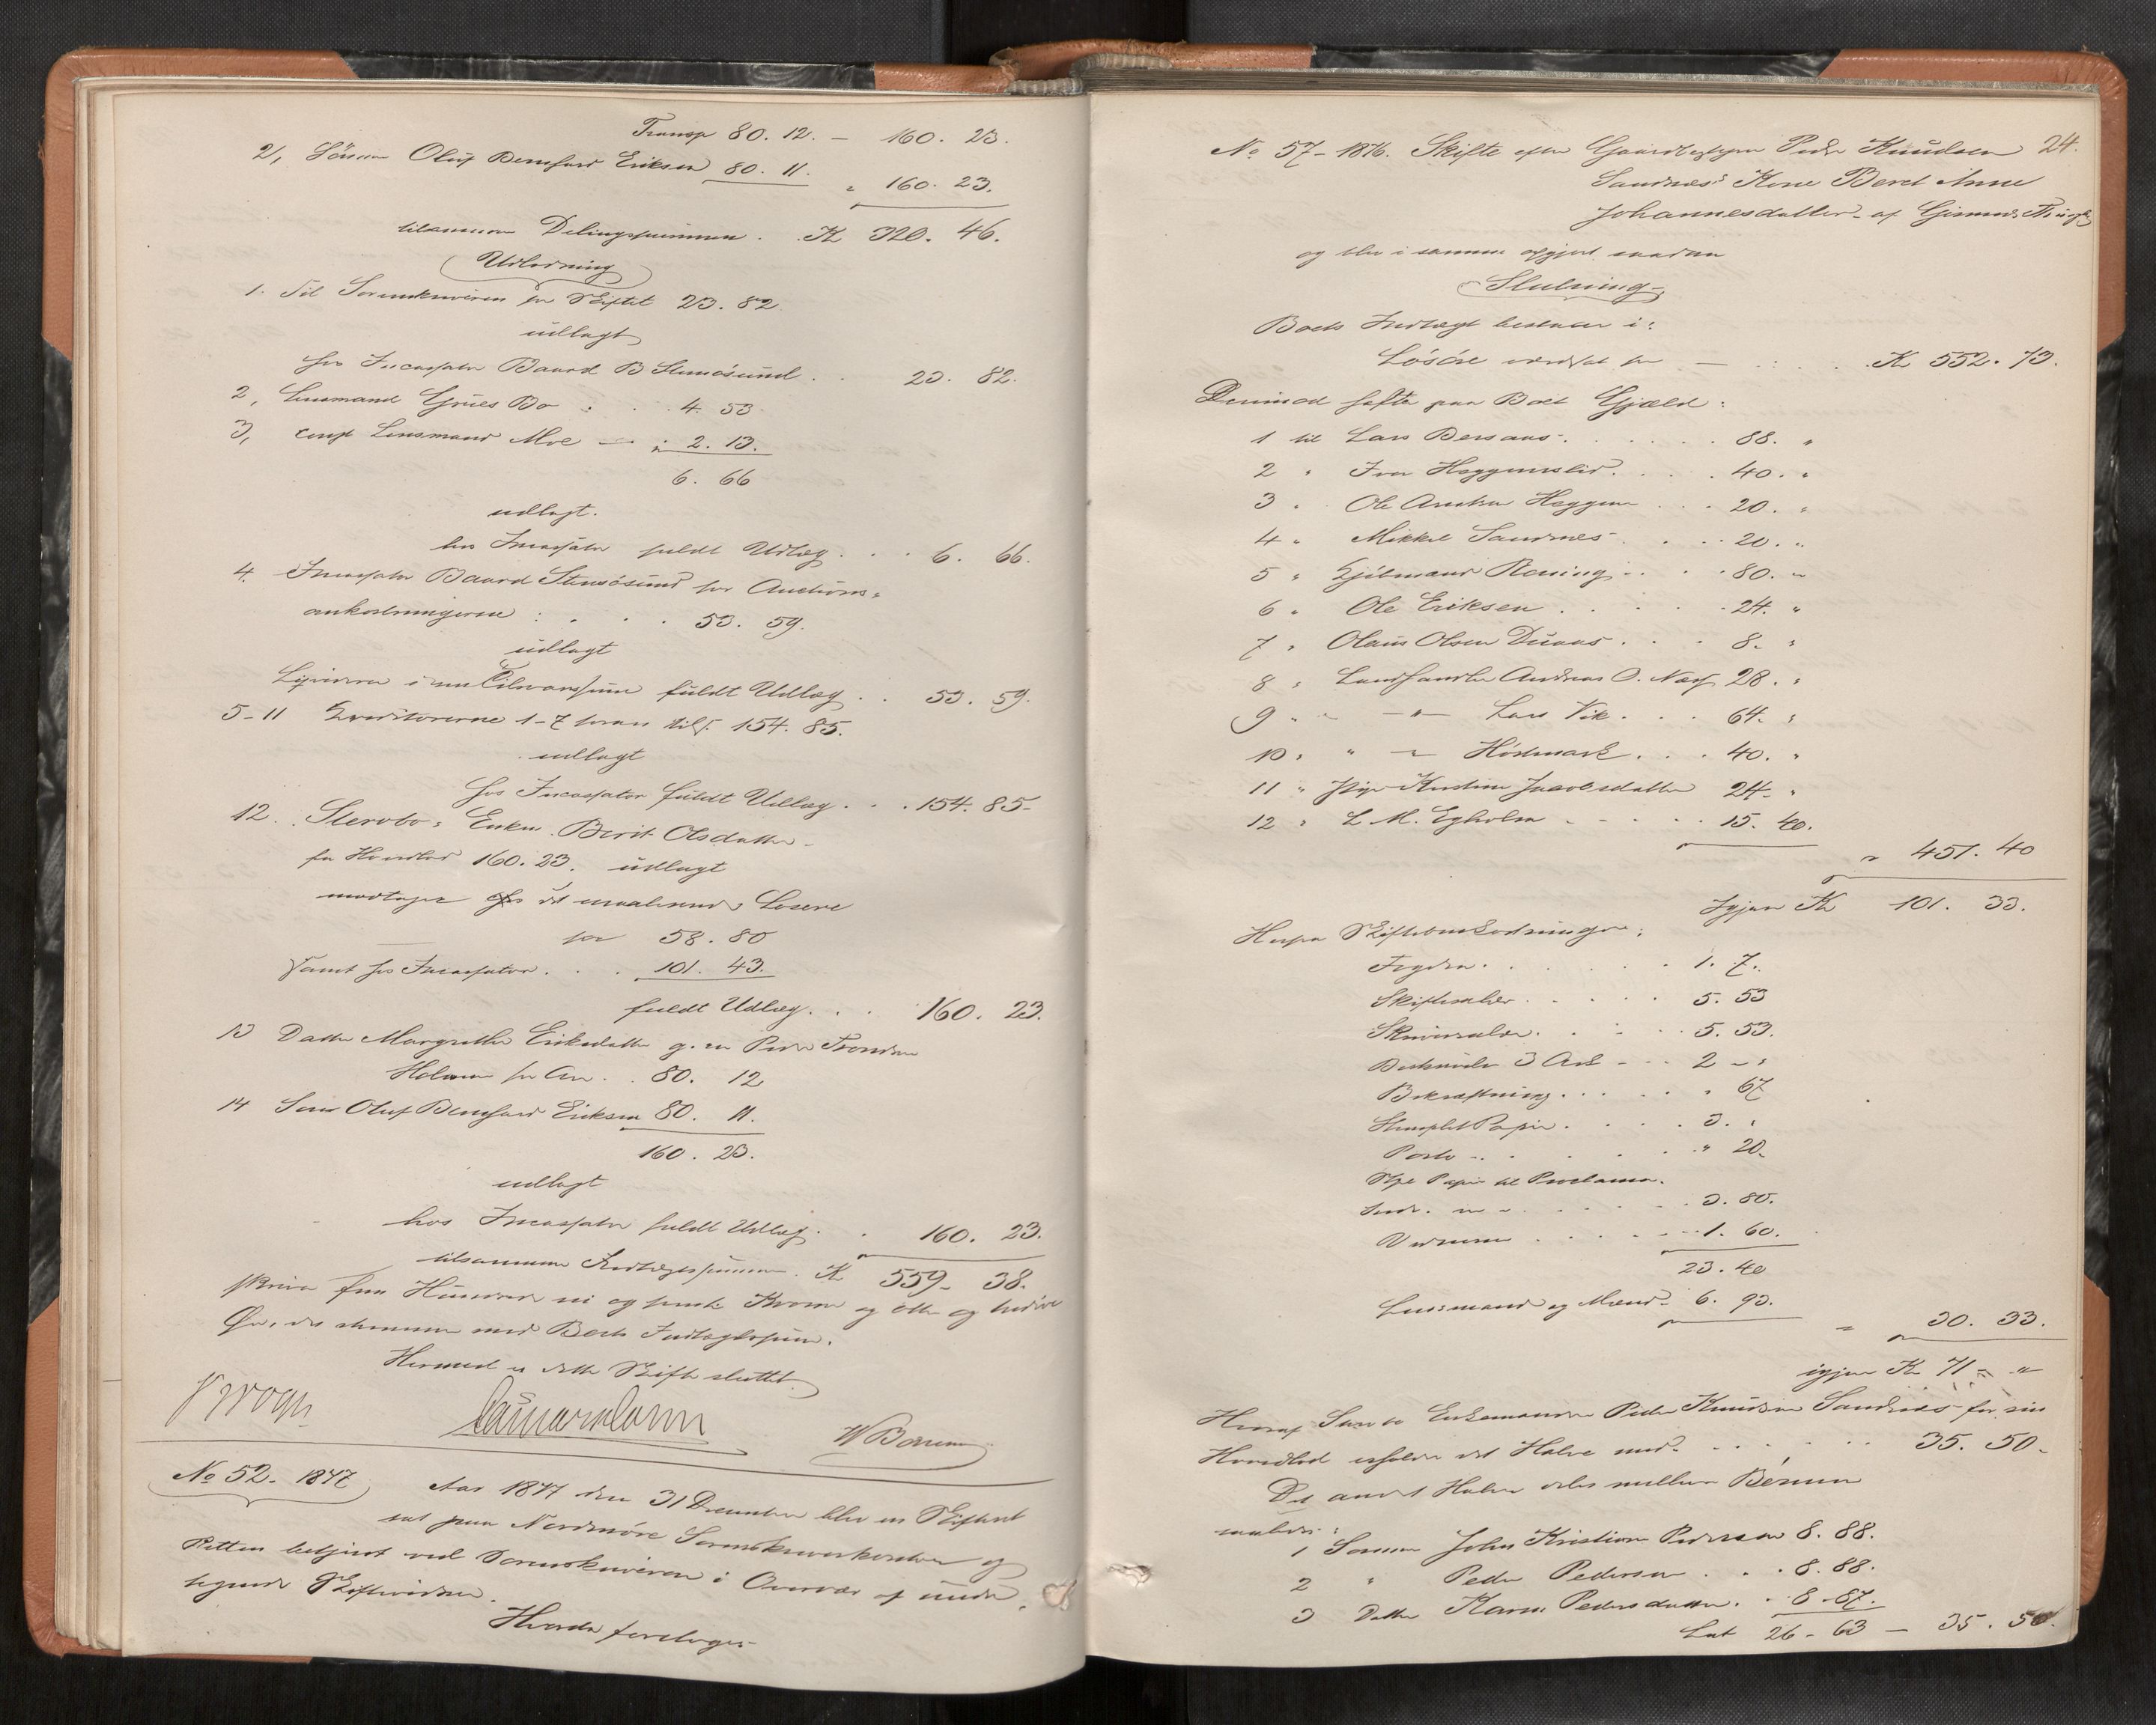 Transp 80. 12. — 160. 23.
2, Sönnen Oluf Bernhard Eriksen 80. 11. " 160. 23.
tilsammen Delingssummen . K 320. 46.
Udlodning
1. Til Sorenskriveren for Skiftet 23. 82
udlagt
hos Incassator Baard B Stensösund . . 23. 82.
2, Lensmand Grües Bo : . . 4. 53
3, const Lensmand Moe — : 2. 13.
6. 66
udlagt.
hos Incassator fuldt Udlæg . . . 6. 66.
4. Incassator Baard Stensösund for Auctions-
omkostningerne : . . . 53. 59.
udlagt
fuldt Udlæg . . 53. 59.
5-11 Kreditorerne 1-7 foran tils. 154. 85.
udlagt
hos Incassator fuldt Udlæg . . . 154. 85-
12. Stervbo- Enken Berit Olsdatter
for Hovedlod 160. 23. udlagt
modtagne Løsøre
for 58. 80
samt hos Incassator . . . 101. 43.
fuldt Udlæg . . . 160. 23.
13 Datter Margrethe Eriksdatter g. m Peder Trondsen
Holmen for Arv . . 80. 12
14 Sön Oluf Bernhard Eriksen 80. 11.
160. 23.
udlagt
hos Incassator fuldt Udlæg . . 160. 23.
tilsammen Indtægtssummen . K 559- 38.
skriver fem Hundrede ni og femti Kroner og otte og tredive
Øre, der stemmer med Boets Indtægtssum.
Hermed er dette Skifte sluttet
No 52. 1877
Aar 1877 den 31 December blev en Skifteret
sat paa Nordmöre Sorenskriverkontor og
Retten betjent ved Sorenskriveren i Overvær af under-
tegnede Skiftevidner.
Hvorda foretoges
No 57- 1876. Skifte efter Gaardbruger Peder Knudsen 24.
Sandnes's Kone Beret Anne
Johannesdatter af
og blev i samme opgjort saadan
Slutning
Boets Indtægt bestaar i:
Lösöre vurderet for — . : . . . K 552. 73.
Derimod hefter paa Boet Gjæld:
1 til Lars Bersaas . . . . . . 88. "
2 " Iver Heggemslid . . . . 40. "
3 " Ole Heggem . . . 20. "
4 " Mikkel Sandnes . . . . 20. "
5 " Kjöbmand Rening . . . . 80. "
6 " Ole Eriksen . . . . . 24. "
7 " Olaus Olsen Duaas . . . 8. "
8 " Landhandler Andreas O. Næss 28. "
9 " " — " — Lars Vik . . . 64. "
10 " " — " Hödmark . . . 40. "
11 " Pige Kirstine Jacobsdatter 24. "
12 " L M. Egholm . . . . . 15. 40.
" 451. 40
Igjen K 101. 33.
Herfra Skifteomkostninger:
Fogden . . . . . . . 1. 7.
Skiftesaler . . . . . . 5. 53
Skriversaler . . . . . 5. 53.
Beskrivelse 3 Ark . . . 2 — "
Bekræftning . . . . . " 67
Stemplet Papir . . . . 3. "
Porto . . . . . . " 20.
Papir til Proclama
. . . . . 3. 80.
. . . . . 1. 60.
23. 40
Lensmand og Mænd 6. 93.
" 30. 33.
igjen K 71 — "
Heraf Enkemanden Peder Knudsen Sandnes for sin
Hovedlod erholder det Halve med . . . . . . 35. 50.
Det andet Halve deles mellem Börnene
saaledes:
1 Sönnen John Kristian Pedersen 8. 88.
2 " Peder Pedersen . . . 8. 88.
3 Datter Karen Pedersdatter . . 8. 87.
Lat 26 - 63 — 35. 50.